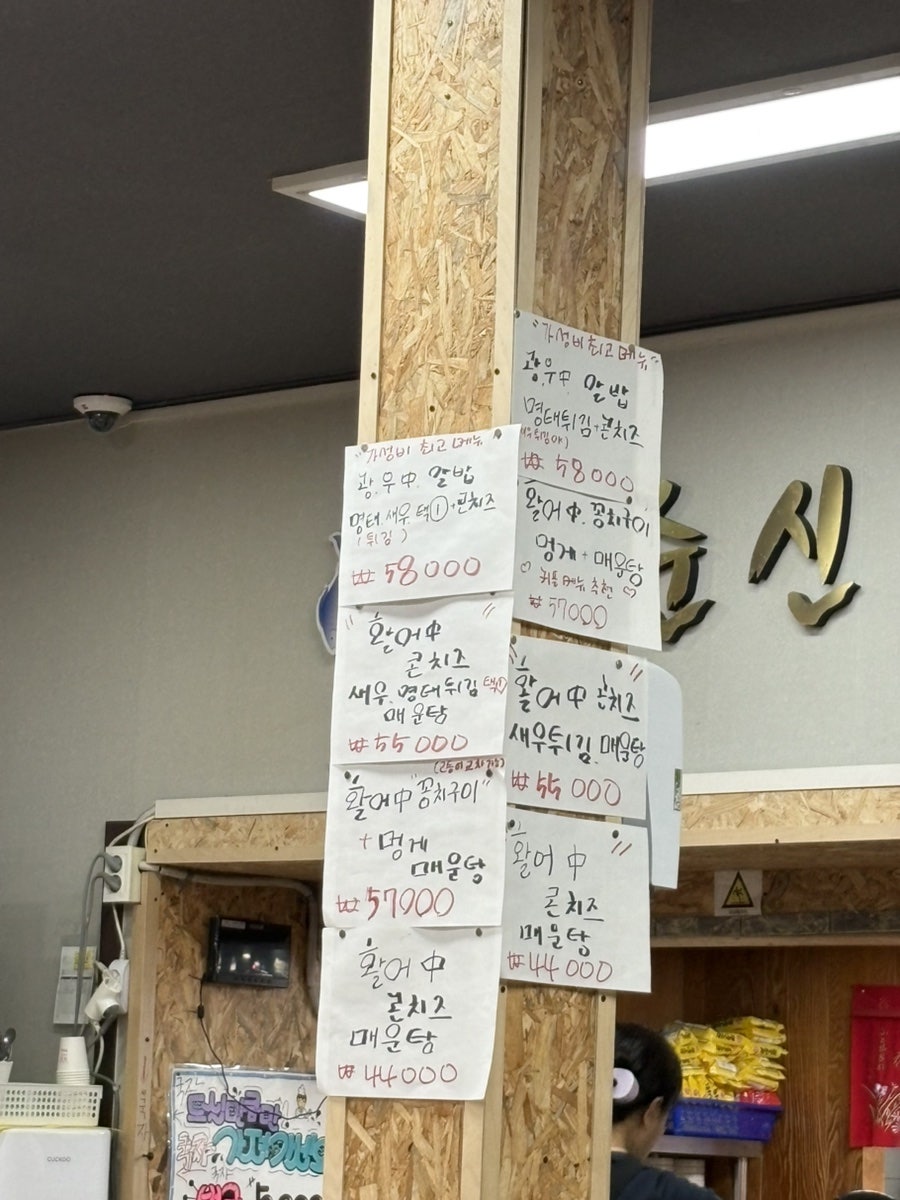 "가성비 최고 메뉴"
광.우 中. 알밥
명태.새우.택①+콘치즈
(튀김)
₩ 58000
"활어中"
콘치즈
새우.명태튀김 택1
매운탕
₩ 55000
(고등어교차가능)
활어中 "꽁치구이"
+ 멍게
매운탕
₩ 57000
활어 中
콘치즈
매운탕
₩ 44000
"가성비 최고 메뉴"
광.우 中 알밥
명태튀김+콘치즈
₩ 58000
활어 中. 꽁치구이
멍게 + 매운탕
♡ 커플메뉴 추천 ♡
₩ 57000
"활어 中 콘치즈"
새우튀김.매운탕
₩ 55000
"활어 中"
콘치즈
매운탕
₩ 44000
신
CUCKOO